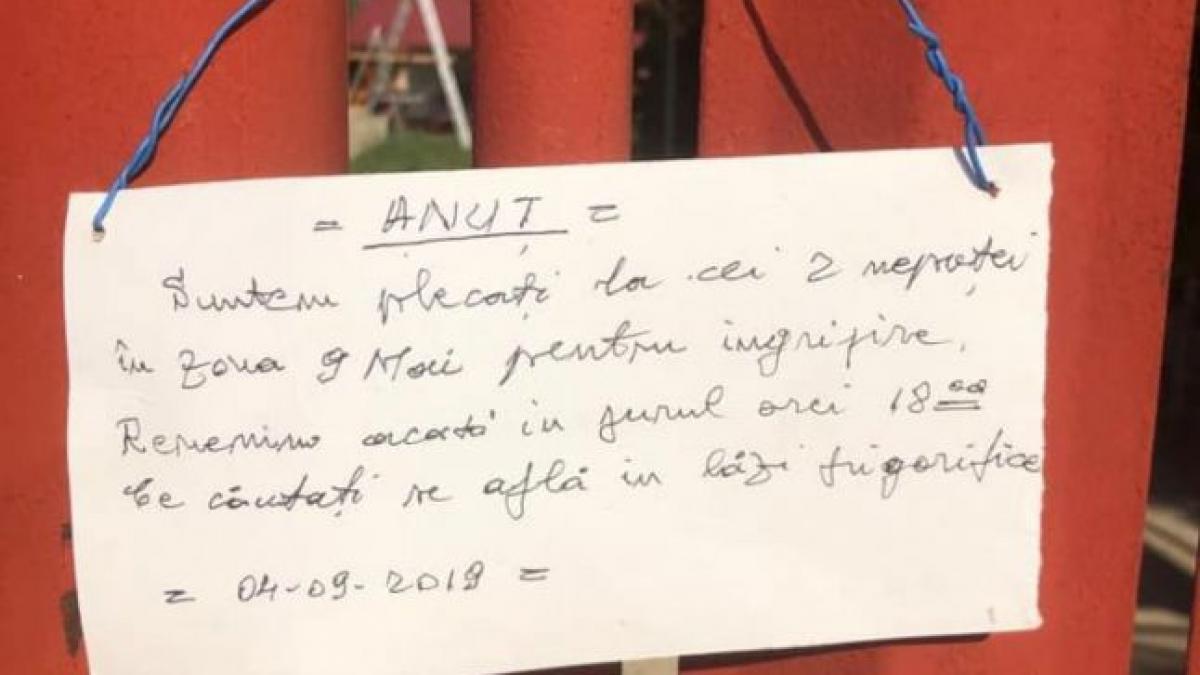 = ANUȚ =
Suntem plecați la cei 2 nepoței
în zona 9 Mai pentru ingrijire.
Revenim acasă in jurul orei 18 00
Ce căutați se află in lăzi frigorifice
= 04-09-2019 =